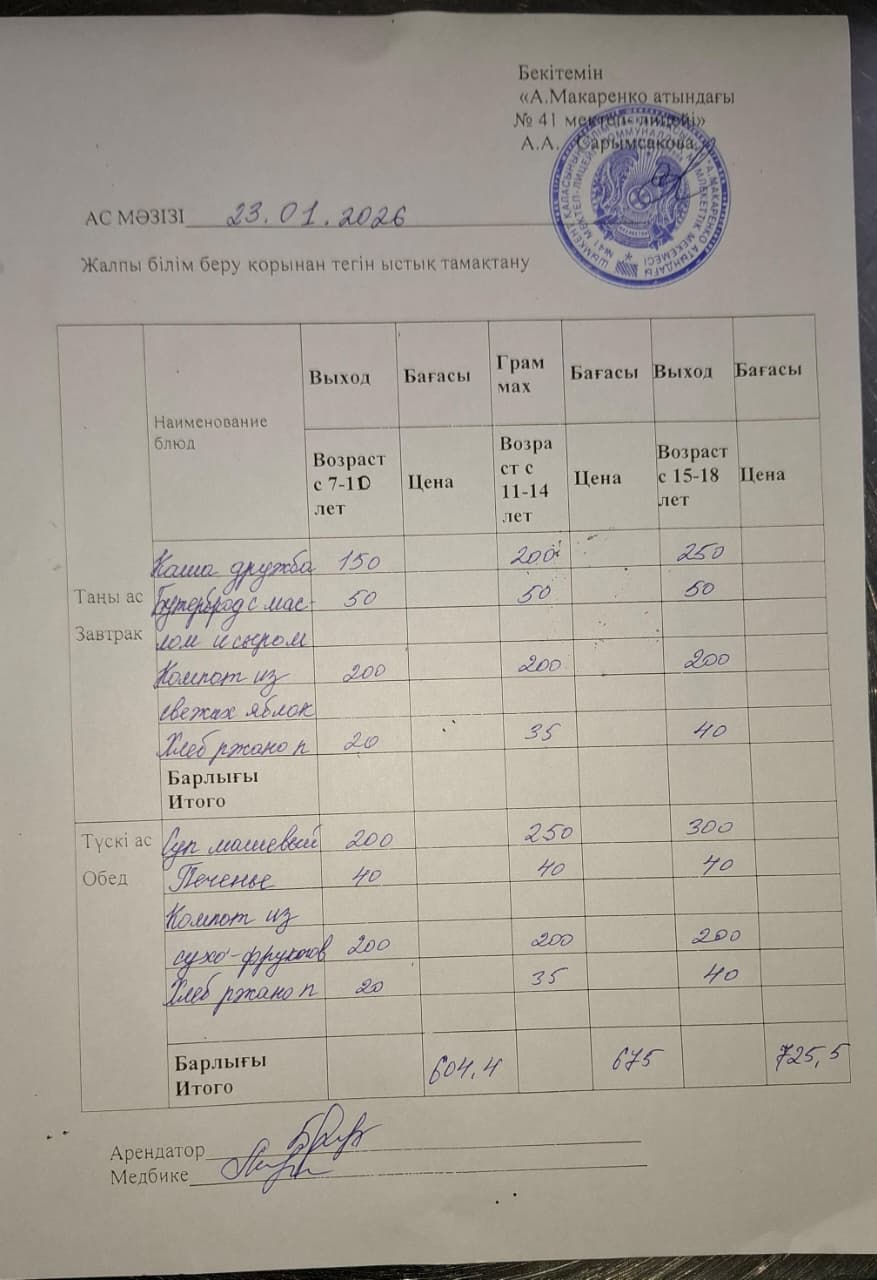 Бекітемін
«А.Макаренко атындағы
№ 41 мектеп- лицейі»
А.А. Сарымсакова
АС МӘЗІЗІ 23.01.2026
Жалпы білім беру қорынан тегін ыстық тамақтану
Наименование блюд Выход Бағасы Грам мах Бағасы Выход Бағасы
Возраст с 7-10 лет Цена Возра ст с 11-14 лет Цена Возраст с 15-18 лет Цена
Таңы ас
Завтрак
Каша дружба 150 200 250
Бутерброд с мас- 50 50 50
лом и сыром
Компот из 200 200 200
свежих яблок
Хлеб ржано п 20 35 40
Барлығы
Итого
Түскі ас
Обед
Суп машевый 200 250 300
Печенье 40 40 40
Компот из
сухо-фруктов 200 200 200
Хлеб ржано п 20 35 40
Барлығы
Итого 604,4 675 725,5
Арендатор
Медбике